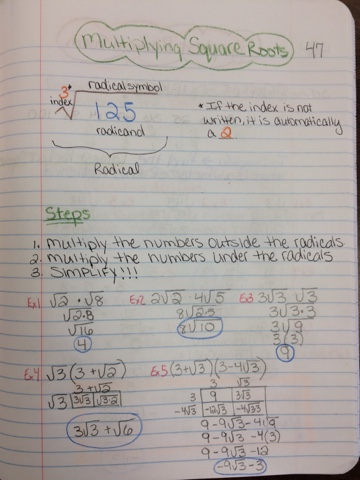 Multiplying Square Roots
47
3
index
radical symbol
125
radicand
Radical
* If the index is not
written, it is automatically
a 2
Steps
1. Multiply the numbers outside the radicals
2. multiply the numbers under the radicals
3. SIMPLIFY!!!
Ex1 √2 · √8
√2·8
√16
4
Ex2 2√2 · 4√5
8√2·5
8√10
Ex3 3√3 · √3
3√3·3
3√9
3(3)
9
Ex4 √3(3+√2)
3 + √2
√3 3√3 √3·2
3√3 + √6
Ex5 (3+√3)(3-4√3)
3 √3
3 9 3√3
-4√3 -12√3 -4√3·3
9 - 9√3 - 4√9
9 - 9√3 - 4(3)
9 - 9√3 - 12
-9√3 - 3